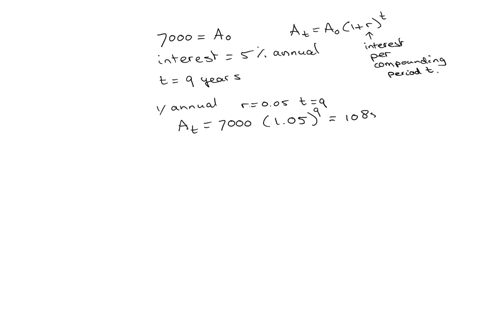 7000 = A₀
Aₜ = A₀ (1+r)ᵗ
↑
interest
per
compounding
period t.
interest = 5% annual
t = 9 years
1/ annual r = 0.05 t = 9
Aₜ = 7000 (1.05)⁹ = 108